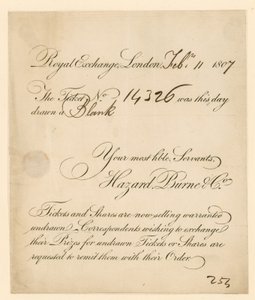 Royal Exchange, London, Feb. 11 1807
The Ticket No. 14326 was this day
drawn a Blank
Your most hble. Servants,
Hazard, Burne & Co.
Tickets and Shares are now selling warranted
undrawn. Correspondents wishing to exchange
their Prizes for undrawn Tickets or Shares are
requested to remit them with their Order.